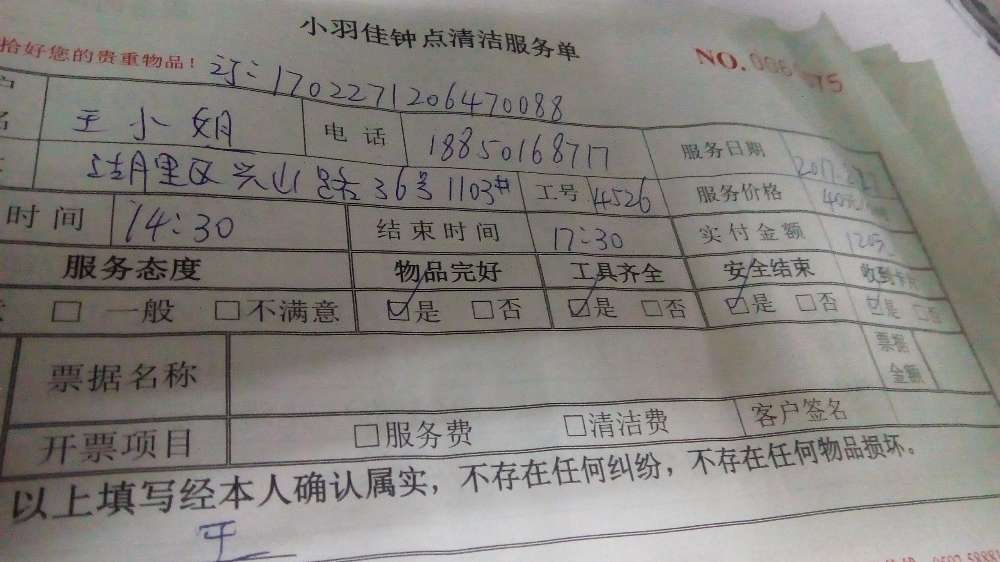 小羽佳钟点清洁服务单
拾好您的贵重物品！ 订：1702271206470088 NO.
王小姐 电话 18850168717 服务日期 2017.2.27
里区兴山路36号1103# 工号 4526 服务价格
时间 14:30 结束时间 17:30 实付金额
服务态度 物品完好 工具齐全 安全结束 收到卡片
□ 一般 □不满意 ☑是 □否 ☑是 □否 ☑是 □否 ☑是 □否
票据名称 票据金额
开票项目 □服务费 □清洁费 客户签名
以上填写经本人确认属实，不存在任何纠纷，不存在任何物品损坏。
王